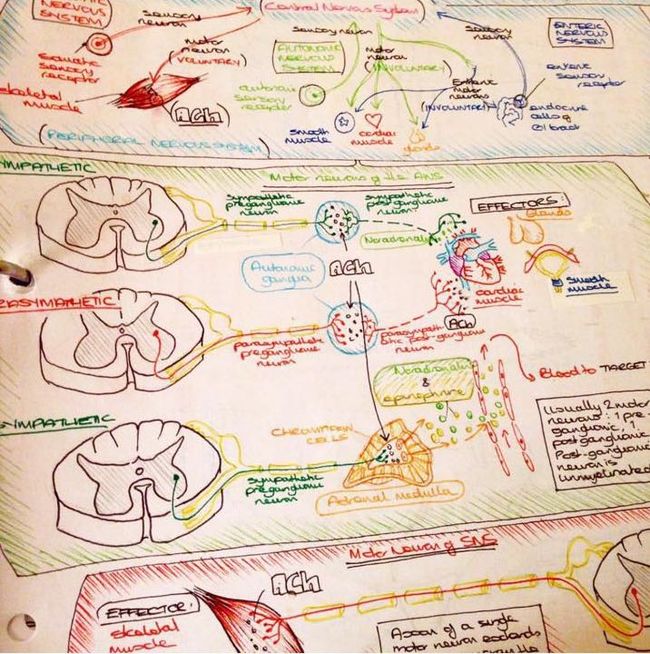 NERVOUS
SYSTEM
Sensory
neuron
Central Nervous System
Somatic
sensory
receptor
skeletal
muscle
Motor
neuron
(VOLUNTARY)
(ACh)
AUTONOMIC
NERVOUS
SYSTEM
autonomic
sensory
receptor
Sensory neuron
Motor
neuron
(INVOLUNTARY)
smooth
muscle
cardiac
muscle
glands
Sensory
neuron
ENTERIC
NERVOUS
SYSTEM
Enteric
motor
neurons
(INVOLUNTARY)
enteric
sensory
receptor
endocrine
cells of
GI tract
(PERIPHERAL NERVOUS SYSTEM)
Motor neurons of the ANS
SYMPATHETIC
sympathetic
preganglionic
neuron
sympathetic
post-ganglionic
neuron
Noradrenaline
EFFECTORS:
Glands
cardiac
muscle
smooth
muscle
Autonomic
ganglia
ACh
PARASYMPATHETIC
parasympathetic
preganglionic
neuron
parasympath
etic post-ganglionic
neuron
ACh
Noradrenaline
&
epinephrine
Blood to TARGET
SYMPATHETIC
CHROMAFFIN
CELLS
sympathetic
preganglionic
neuron
Adrenal medulla
Usually 2 motor
neurons: 1 pre-
ganglionic, 1
postganglionic
Post-ganglionic
neuron is
unmyelinated
Motor Neuron of SNS
ACh
EFFECTOR:
skeletal
muscle
Axon of a single
motor neuron extends